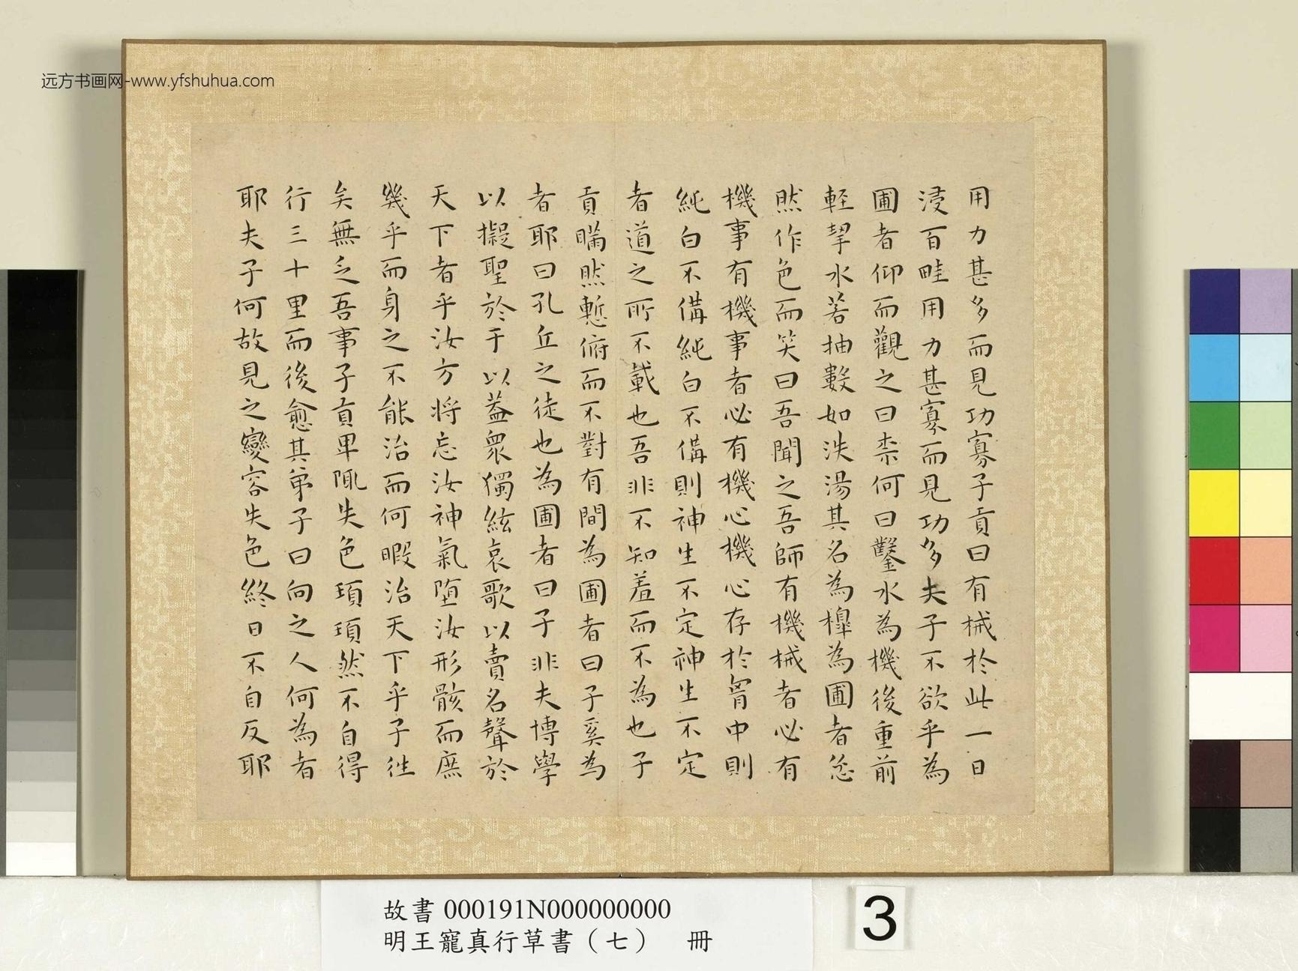 远方书画网-www.yfshuhua.com
用力甚多而見功寡子貢曰有械於此一日
浸百畦用力甚寡而見功多夫子不欲乎為
圃者仰而觀之曰柰何曰鑿水為機後重前
輕挈水若抽數如泆湯其名為橰為圃者忿
然作色而笑曰吾聞之吾師有機械者必有
機事有機事者必有機心機心存於胷中則
純白不備純白不備則神生不定神生不定
者道之所不載也吾非不知羞而不為也子
貢瞞然慙俯而不對有間為圃者曰子奚為
者耶曰孔丘之徒也為圃者曰子非夫博學
以擬聖於于以蓋衆獨絃哀歌以賣名聲於
天下者乎汝方將忘汝神氣墮汝形骸而庶
幾乎而身之不能治而何暇治天下乎子往
矣無乏吾事子貢卑陬失色頊頊然不自得
行三十里而後愈其弟子曰向之人何為者
耶夫子何故見之變容失色終日不自反耶
故書 000191N000000000
明王寵真行草書（七） 冊
3